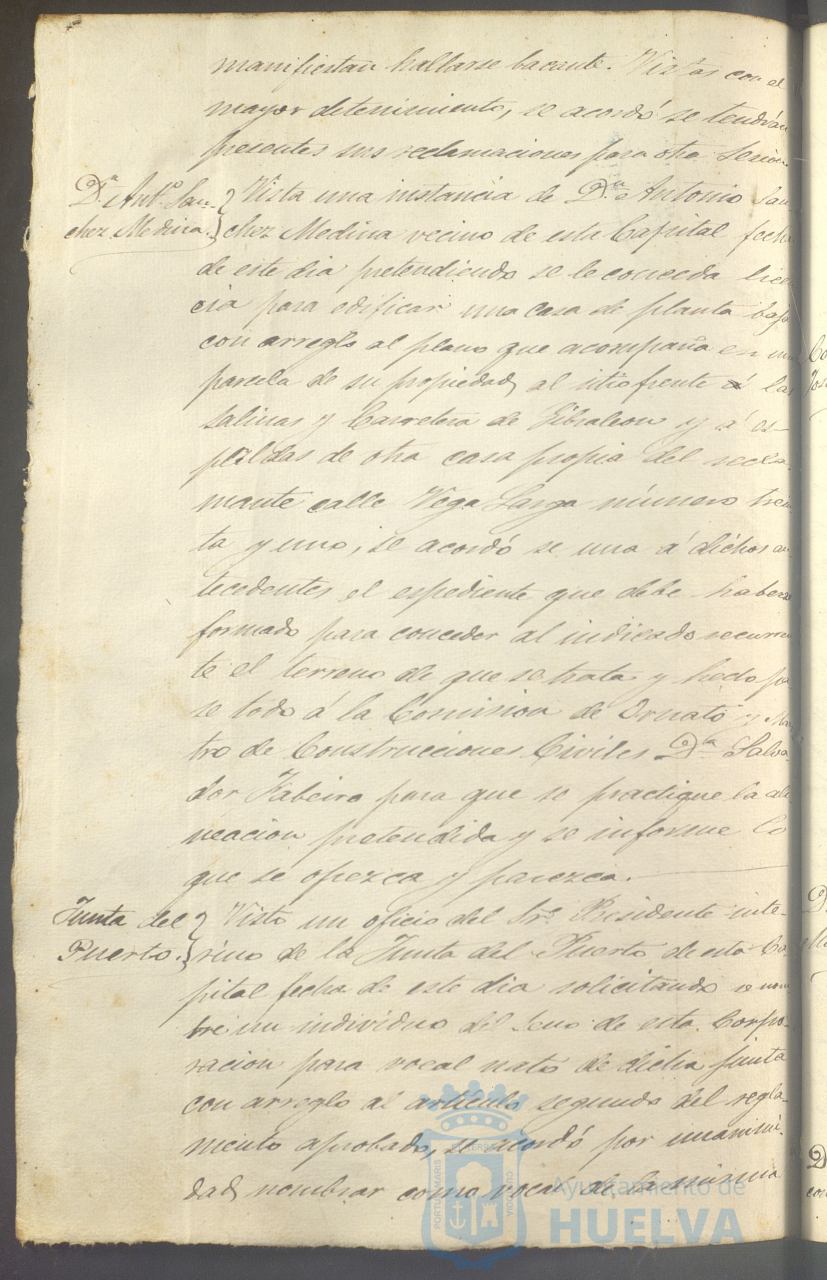 manifiestan hallarse bacante. Vistas con el
mayor detenimiento, se acordó se tendrán
presentes sus reclamaciones para otra Sesion
Dn. Antº. San-
chez Medina.
Vista una instancia de Dn. Antonio San-
chez Medina vecino de esta Capital fecha
de este dia pretendiendo se le conceda licen
cia para edificar una casa de planta baja
con arreglo al plano que acompaña en una
parcela de su propiedad, al sitio frente á las
Salinas y Carretera de Gibraleon y á es-
paldas de otra casa propia del recla-
mante calle Vega Larga número trein
ta y uno, se acordó se una á dichos an
tecedentes el espediente que debe haberse
formado para conceder al indicado recurren
te el terreno de que se trata y hecho pa
se todo á la Comision de Ornato y Maes
tro de Construcciones Civiles Dn. Salva-
dor para que se practique la ali
neacion pretendida y se informe lo
que se ofrezca y parezca.
Junta del
Puerto.
Visto un oficio del Sr. Presidente inte-
rino de la Junta del Puerto de esta Ca-
pital fecha de este dia solicitando se nom
bre un individuo del Seno de esta Corpo-
racion para vocal nato de dicha Junta
con arreglo al artículo segundo del regla-
mento aprobado, se acordó por unanimi-
dad, nombrar como vocal de la misma
Ayuntamiento de
HUELVA